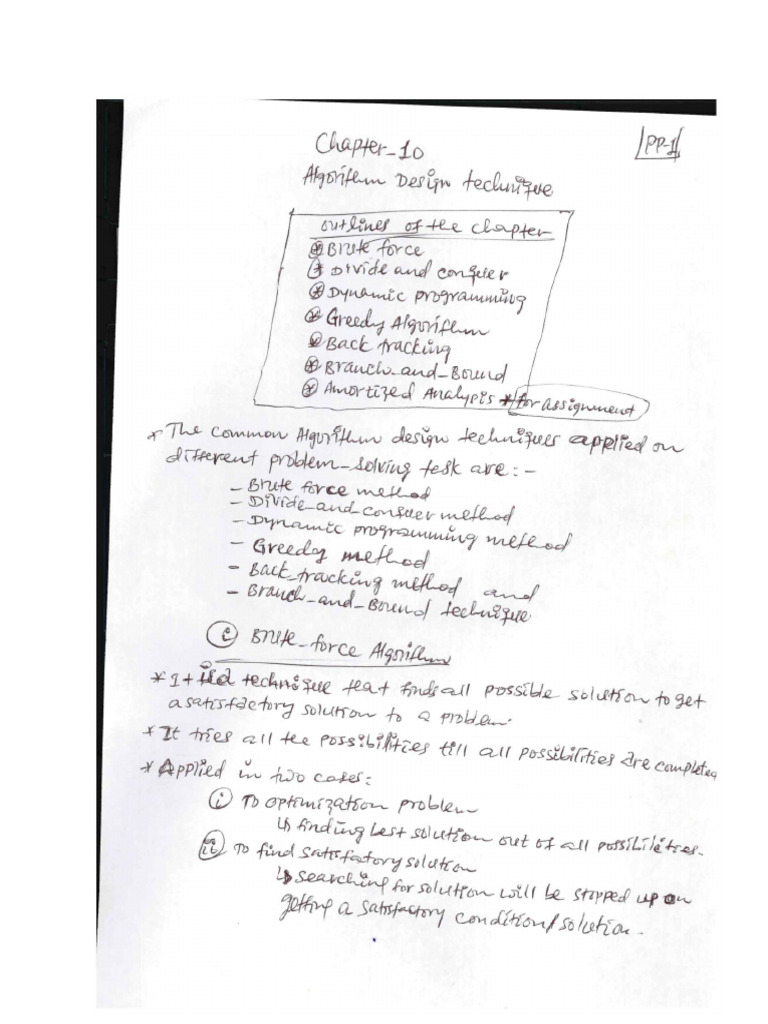 Chapter-10
PP-1
Algorithm Design technique
outlines of the chapter
* Brute force
* Divide and conquer
* Dynamic programming
* Greedy Algorithm
* Back tracking
* Branch-and-Bound
* Amortized Analysis * for assignment
* The common Algorithm design techniques applied on
different problem-solving task are:-
- Brute force method
- Divide-and-conquer method
- Dynamic programming method
- Greedy method
- Back-tracking method and
- Branch-and-Bound technique
Brute-force Algorithm
* It technique that finds all possible solution to get
a satisfactory solution to a problem.
* It tries all the possibilities till all possibilities are completed
* Applied in two cases:
(i) To optimization problem
↳ finding best solution out of all possibilities.
(ii) To find satisfactory solution
↳ searching for solution will be stopped up on
getting a satisfactory condition/solution.